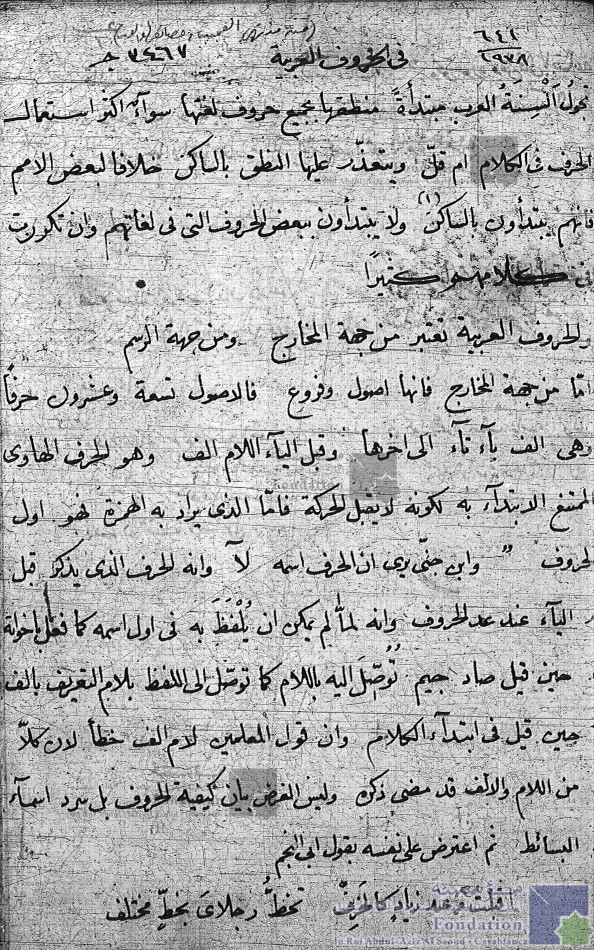 ٦٤٢
٢٩٣٨
في الحروف العربية
٣٤٦٧
تحول ألسنة العرب مبتدأةً منطقها بجميع حروف لغتها سوآءٌ اكثر استعمال
الحرف فى الكلام ام قلّ ويتعذّر عليها النطق بالساكن خلافا لبعض الامم
فانهم يبتدأون بالساكن (١) ولا يبتدأون ببعض الحروف التى فى لغاتهم وان تكررت
فى كلامهم كثيرًا
والحروف العربية تعتبر من جهة المخارج ومن جهة الرسم
امّا من جهة المخارج فانها اصول وفروع فالاصول تسعة وعشرون حرفًا
وهى الف بآء تآء الى اخرها وقبل اليآء اللام الف وهو الحرف الهاوى
الممتنع الابتدآء به لكونه لا يقبل الحركة فامّا الذى يراد به الهمزة فهو اول
الحروف " وابن جنّى يرى ان الحرف اسمه لآ وانه الحرف الذى يذكر قبل
اليآء عند عد الحروف وانه لمّا لم يمكن ان يُلْفَظَ به فى اول اسمه كما فعل باخواته
حين قيل صاد جيم تُوصّل اليه باللام كما توصّل الى اللفظ بلام التعريف بالف
حين قيل فى ابتدآء الكلام وان قول المعلمين لام الف خطأ لان كلاًّ
من اللام والالف قد مضى ذكره وليس الغرض بيان كيفية الحروف بل سرد اسمآء
البسائط ثم اعترض على نفسه بقول ابى النجم
اقبلت من عند زيادٍ كالخَرِفْ تخطُّ رجلاىَ بخطٍّ مختلف
Fondation
du Roi Abdul-Aziz Al Saoud - Casablanca